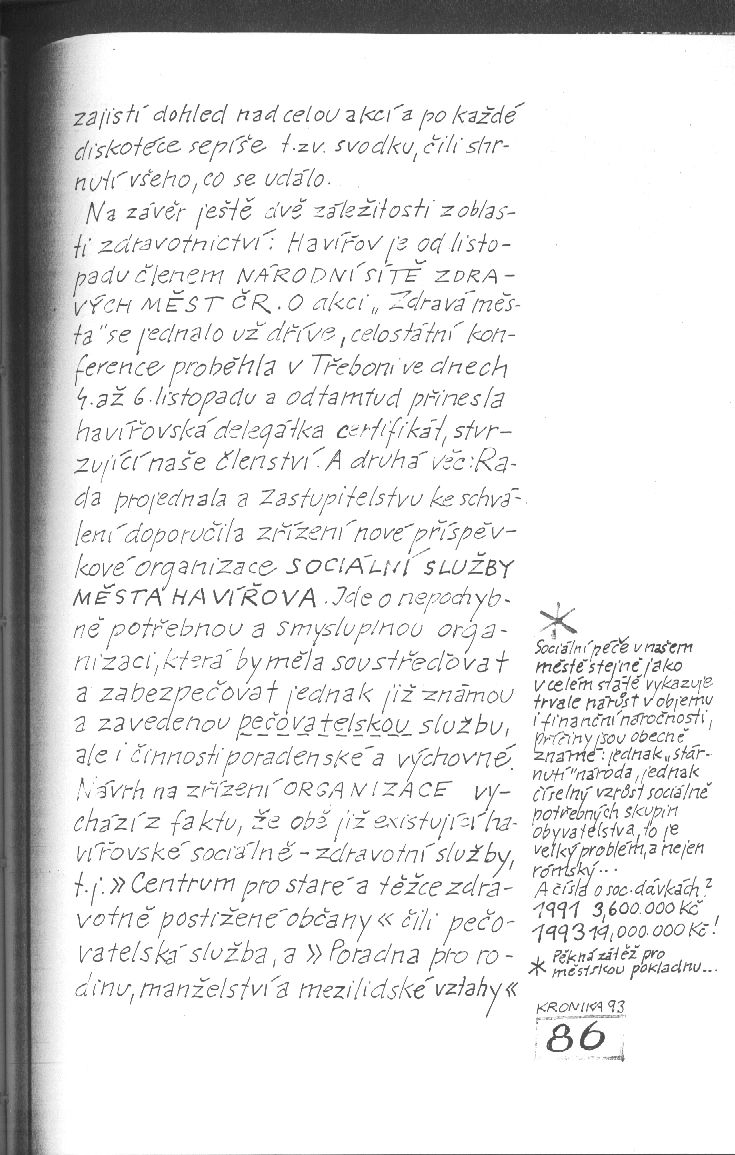 zajistí dohled nad celou akcí a po každé
diskotéce sepíše t.zv. svodku, čili shr-
nutí všeho, co se událo.
Na závěr ještě dvě záležitosti z oblas-
ti zdravotnictví: Havířov je od listo-
padu členem NÁRODNÍ SÍTĚ ZDRA-
VÝCH MĚST ČR. O akci „Zdravá měs-
ta" se jednalo už dříve, celostátní kon-
ference proběhla v Třeboni ve dnech
4. až 6. listopadu a odtamtud přinesla
havířovská delegátka certifikát, stvr-
zující naše členství. A druhá věc: Ra-
da projednala a Zastupitelstvu ke schvá-
lení doporučila zřízení nové příspěv-
kové organizace SOCIÁLNÍ SLUŽBY
MĚSTA HAVÍŘOVA. Jde o nepochyb-
ně potřebnou a smysluplnou orga-
nizaci, která by měla soustřeďovat
a zabezpečovat jednak již známou
a zavedenou pečovatelskou službu,
ale i činnosti poradenské a výchovné.
Návrh na zřízení ORGANIZACE vy-
chází z faktu, že obě již existující ha-
vířovské sociálně - zdravotní služby,
t.j. » Centrum pro staré a těžce zdra-
votně postižené občany « čili pečo-
vatelská služba, a » Poradna pro ro-
dinu, manželství a mezilidské vztahy «
*
Sociální péče v našem
městě stejně jako
v celém státě vykazuje
trvale nárůst v objemu
i finanční náročnosti,
příčiny jsou obecně
známé: jednak „stár-
nutí" národa, jednak
číselný vzrůst sociálně
potřebných skupin
obyvatelstva, to je
velký problém, a nejen
rómský...
A čísla o soc. dávkách?
1991 3,600.000 Kč
1993 19,000.000 Kč!
* Pěkná zátěž pro
městskou pokladnu...
KRONIKA 93
86